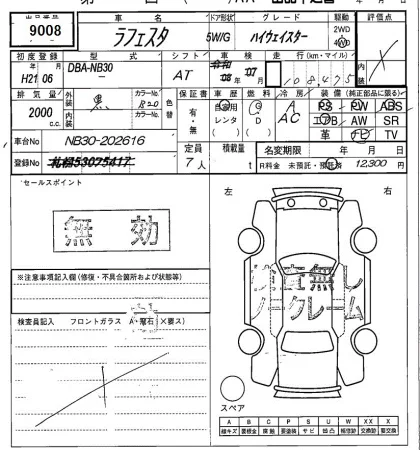 出品番号 車名 ドア形状 グレード 駆動 評価点
9008 ラフェスタ 5W/G ハイウェイスター 2WD 4WD
初度登録 型式 シフト 車検 走行(km・マイル) 内装
H21年 06月 DBA-NB30 AT 令和 08年 07月 108,475
排気量 外装 黒 カラーNo. 色替 保証書 車歴 燃料 冷房 装備(純正部品に限る)
2000 c.c. 内装 カラーNo. 有・無 自家用 レンタ ( ) G D ( ) A AC PS PW ABS
エアB AW SR
革 ナビ TV
車台No NB30-202616 定員 積載量 名変期限 年 月 日
登録No 札幌530ろ5417 7人 t R料金 未預託・預託済 12,300 円
*セールスポイント
左 右
無効
※注意事項記入欄(修復・不具合箇所および状態等)
検査無し
ノークレーム
検査員記入 フロントガラス A・飛石 X(要ス)
スペア
A B C P S U W X XX
線キズ 要板金 腐触 要塗装 サビ 凹凸 補修跡 交換跡 要交換